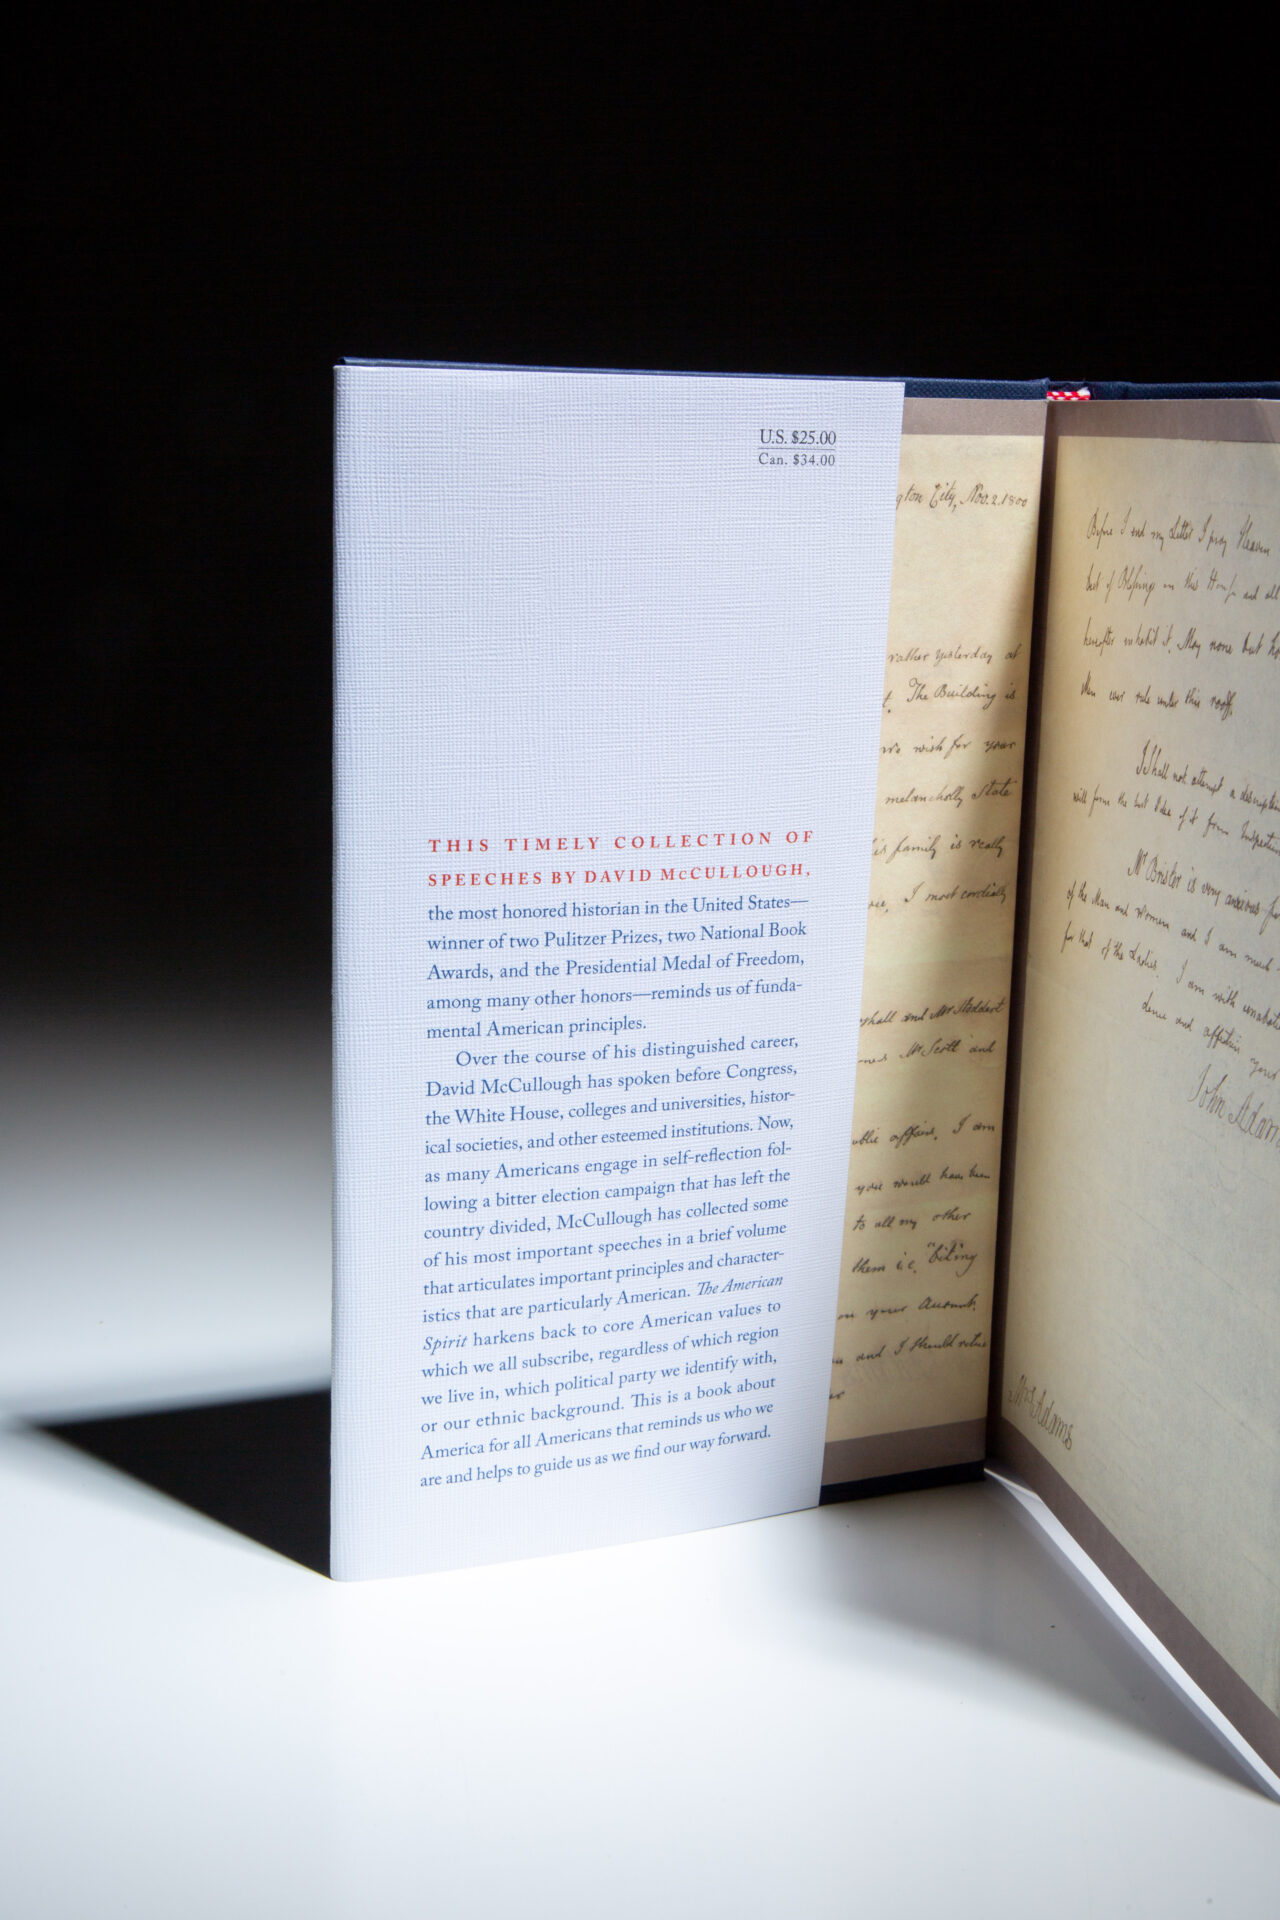 U.S. $25.00
Can. $34.00
THIS TIMELY COLLECTION OF
SPEECHES BY DAVID McCULLOUGH,
the most honored historian in the United States—
winner of two Pulitzer Prizes, two National Book
Awards, and the Presidential Medal of Freedom,
among many other honors—reminds us of funda-
mental American principles.
Over the course of his distinguished career,
David McCullough has spoken before Congress,
the White House, colleges and universities, histor-
ical societies, and other esteemed institutions. Now,
as many Americans engage in self-reflection fol-
lowing a bitter election campaign that has left the
country divided, McCullough has collected some
of his most important speeches in a brief volume
that articulates important principles and character-
istics that are particularly American. The American
Spirit harkens back to core American values to
which we all subscribe, regardless of which region
we live in, which political party we identify with,
or our ethnic background. This is a book about
America for all Americans that reminds us who we
are and helps to guide us as we find our way forward.
gton City, Nov. 2. 1800
rather yesterday at
The Building is
wish for your
melancholly State
his family is really
I most cordially
shall and Mr Stoddert
Mr Scott and
public affairs. I am
you would have been
to all my other
them i.e. "biting
your Account.
and I should relie
Before I end my Letter I pray Heaven
best of Blessings on this House and all
hereafter inhabit it. May none but ho
Men ever rule under this roof.
I shall not attempt a description
will form the best Idea of it from Inspection
Mr Brisler is very anxious for
of the Man and women and I am much
for that of the Ladies. I am with unabated
dence and affection your
John Adam
Mrs Adams